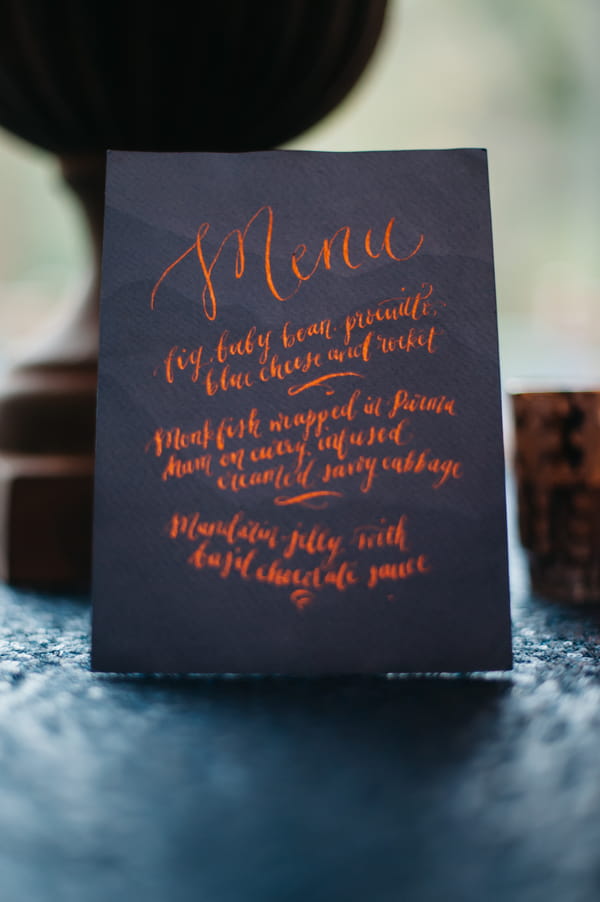 Menu
fig, baby bean, procuitto,
blue cheese and rocket
Monkfish wrapped in Parma
ham on curry infused
creamed savoy cabbage
Mandarin jelly with
basil chocolate sauce